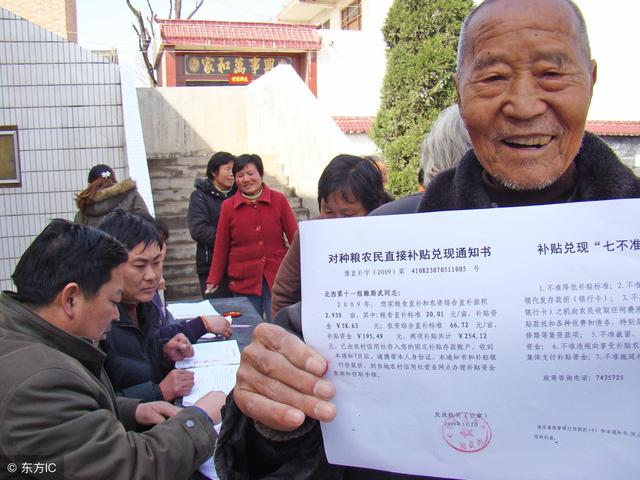 家和萬事興
对种粮农民直接补贴兑现通知书
豫直补字（2009）第 410823070511005 号
北西第十一组 斯武同志：
2009年，您家粮食直补和农资综合直补面积
2.930 亩，其中：粮食直补标准 20.01 元/亩，补贴资
金￥58.63 元；农资综合直补标准 66.72 元/亩，
补贴资金￥195.49 元。以上两项补贴资金共计￥254.12
元，已由农村信用社存入您的固定补贴存款账户。收到
本通知7日后，请携带本人身份证、本通知书和补贴银
行存款折，到当地农村信用社营业网点办理补贴资金
查询和存取手续。
发放机关（公章）
2009年3月2日
补贴兑现“七不准
1.不准降低补贴标准；
领代发存款折（银行卡）；3.
银行卡）之机向农民收取任何
贴款抵扣各种收费和债务，特别
修路等集资款项；5.不准截留、
资金；6.不准违规向享受补贴农
集体支付补贴资金；7.不准拖延
政策咨询电话：7435725
© 东方IC